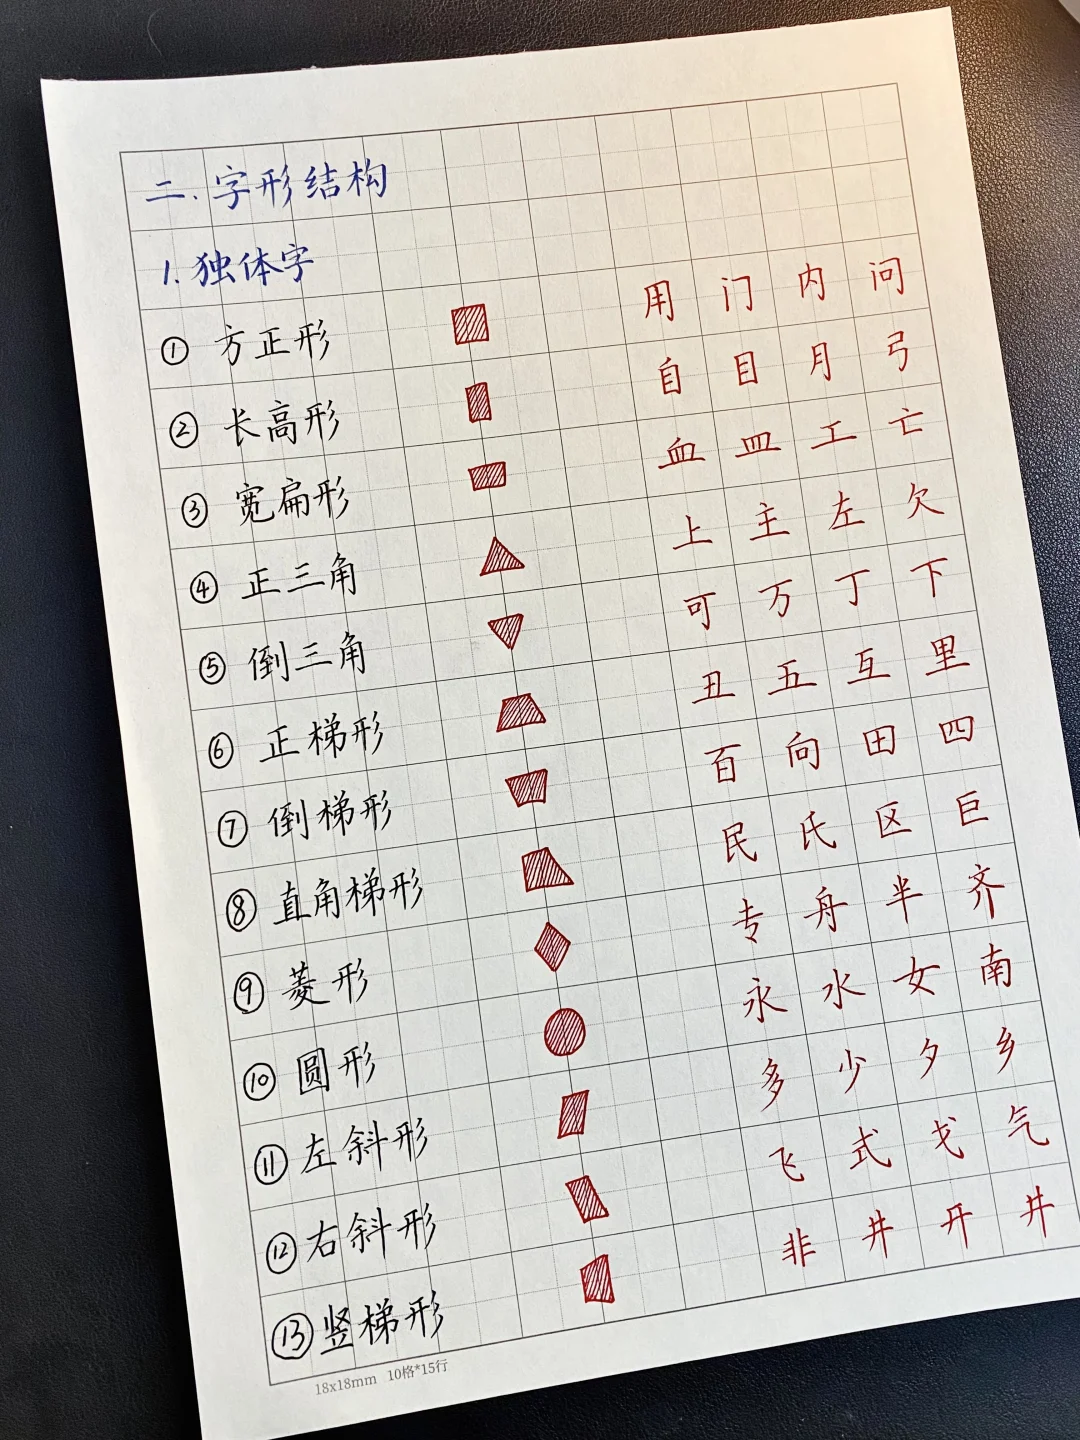 二. 字形结构
1. 独体字
① 方正形 用 门 内 问
② 长高形 自 目 月 弓
③ 宽扁形 血 皿 工 亡
④ 正三角 上 主 左 欠
⑤ 倒三角 可 万 丁 下
⑥ 正梯形 丑 五 互 里
⑦ 倒梯形 百 向 田 四
⑧ 直角梯形 民 氏 区 巨
⑨ 菱形 专 舟 半 齐
⑩ 圆形 永 水 女 南
⑪ 左斜形 多 少 夕 乡
⑫ 右斜形 飞 式 戈 气
⑬ 竖梯形 非 井 开 井
18x18mm 10格*15行